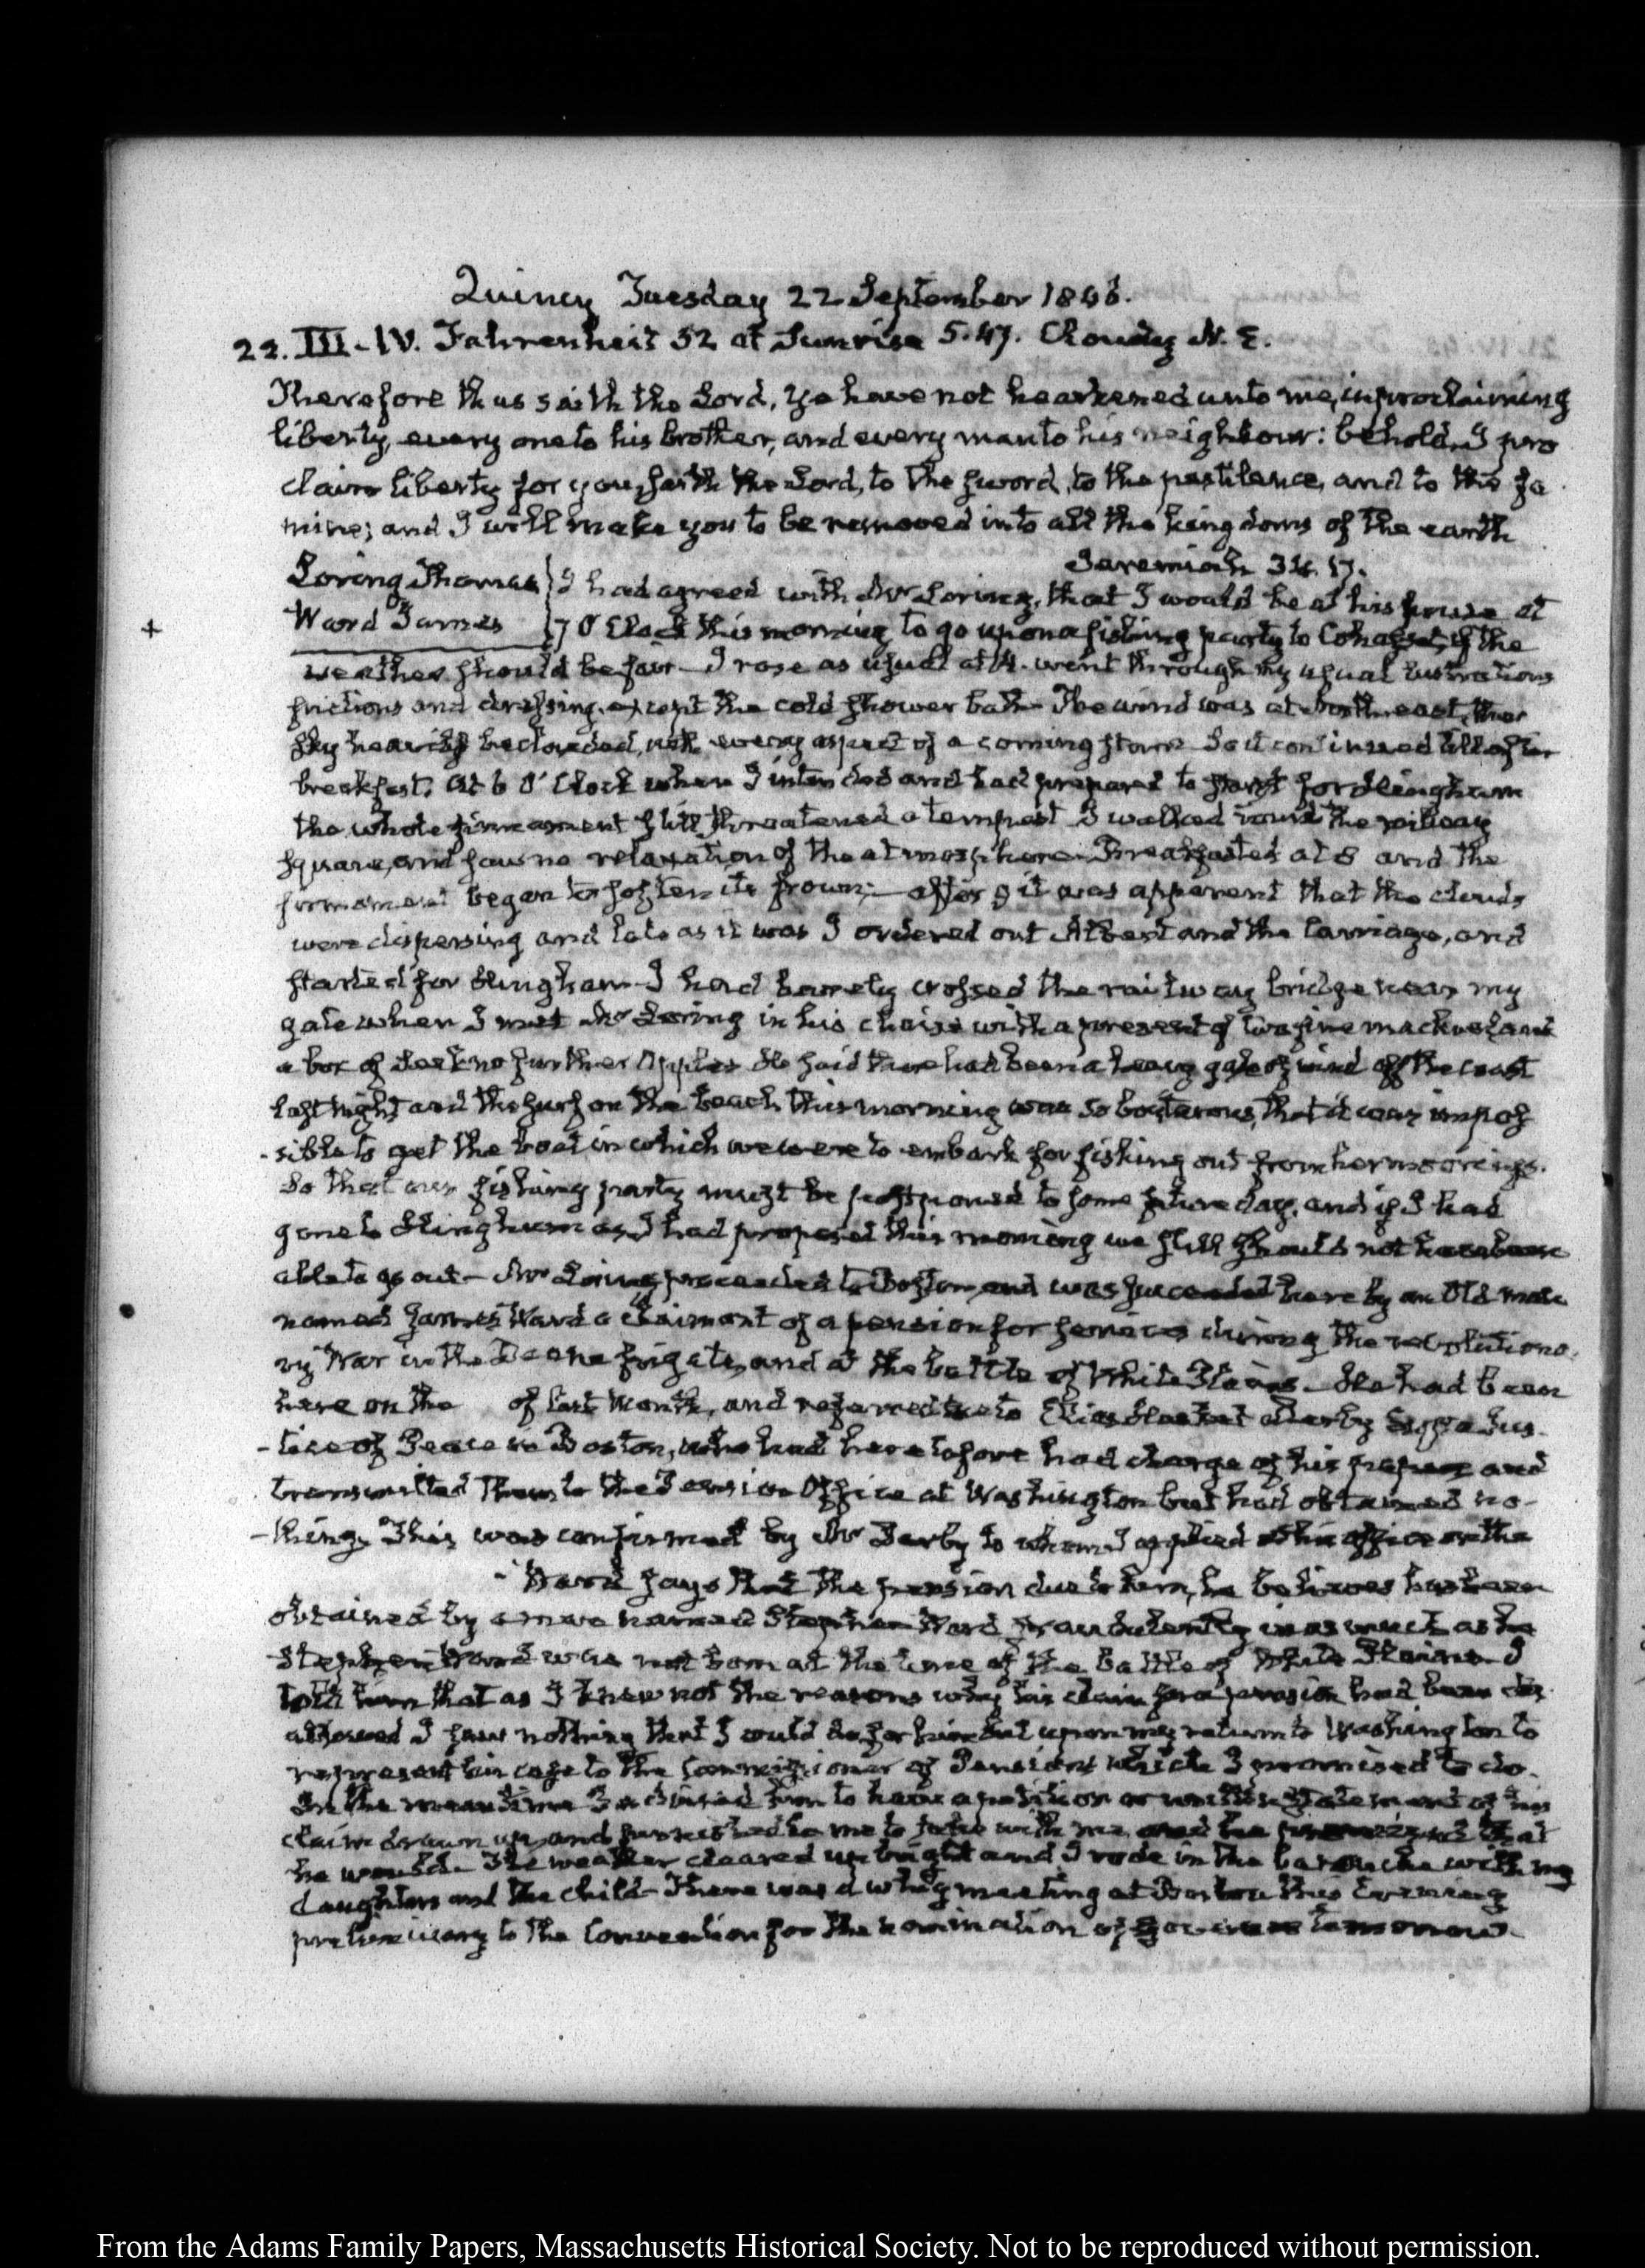 Quincy Tuesday 22 September 1846.
22. III-IV. Fahrenheit 52 at Sunrise 5.47. Cloudy N. E.
Therefore thus saith the Lord, Ye have not hearkened unto me, in proclaiming
liberty, every one to his brother, and every man to his neighbour: behold, I pro
claim liberty for you, saith the Lord, to the sword, to the pestilence, and to the fa
mine; and I will make you to be removed into all the kingdoms of the earth
Jeremiah 34. 17.
Loring Thomas
Ward James
I had agreed with Mr Loring, that I would be at his house at
+ 7 O'Clock this morning to go upon a fishing party to Cohasset, if the
weather should be fair— I rose as usual at 4. went through my usual lustrations
frictions and dressing, except the cold shower bath— The wind was at Northeast, the
sky heavily beclouded, with every aspect of a coming storm— So it continued till after
breakfast. At 6 O'Clock when I intended and had prepared to start for Hingham
the whole firmament still threatened a tempest I walked round the railway
square, and saw no relaxation of the atmosphere. Breakfasted at 8 and the
firmament began to soften its frown;— after 9 it was apparent that the clouds
were dispersing and late as it was I ordered out Albert and the Carriage, and
started for Hingham— I had barely crossed the railway bridge near my
gate when I met Mr Loring in his chaise with a present of two fine mackerel and
a box of seek no further Apples He said there had been a heavy gale of wind off the coast
last night and the surf on the beach this morning was so boisterous, that it was impos
-sible to get the boat in which we were to embark for fishing out from her moorings.
So that our fishing party must be postponed to some future day, and if I had
gone to Hingham as I had proposed this morning we still should not have been
able to go out— Mr Loring proceeded to Boston and was succeeded here by an Old man
named James Ward a Claimant of a pension for services during the revolutiona
ry War in the Deane frigate, and at the battle of White Plains— He had been
here on the of last Month, and referred me to Elias Hasket Derby Esqr a Jus
-tice of Peace in Boston, who had heretofore had charge of his papers and
transmitted them to the Pension Office at Washington but had obtained no-
-thing. This was confirmed by Mr Derby to whom I applied at his office on the
- Ward says that the pension due to him, he believes has been
obtained by a man named Stephen Ward fraudulently in as much as the
Stephen Ward was not born at the time of the battle of White Plains— I
told him that as I knew not the reasons why his claim for a pension had been dis
allowed I saw nothing that I could do for him but upon my return to Washington to
represent his case to the Commissioner of Pensions which I promised to do.
In the meantime I advised him to have a petition or written Statement of his
claim drawn up and furnished to me to take with me and he promised that
he would— The weather cleared up bright and I rode in the barouche with my
daughters and the child— There was a whig meeting at Boston this Evening
preliminary to the Convention for the nomination of Governor tomorrow.
From the Adams Family Papers, Massachusetts Historical Society. Not to be reproduced without permission.